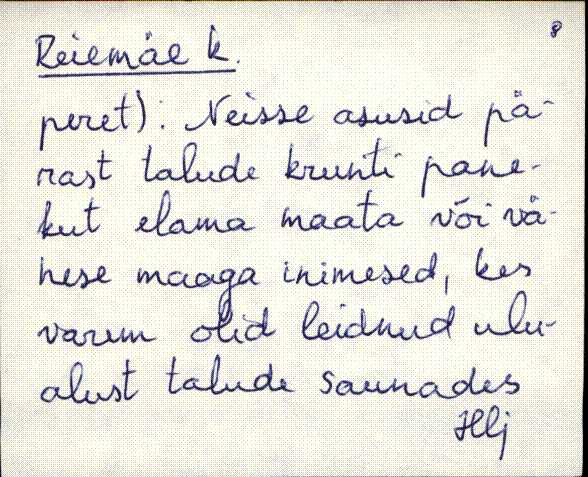 8
Reiemäe k.
peret). Neisse asusid pä-
rast talude krunti pane-
kut elama maata või vä-
hese maaga inimesed, kes
varem olid leidnud ulu-
alust talude saunades
Hlj